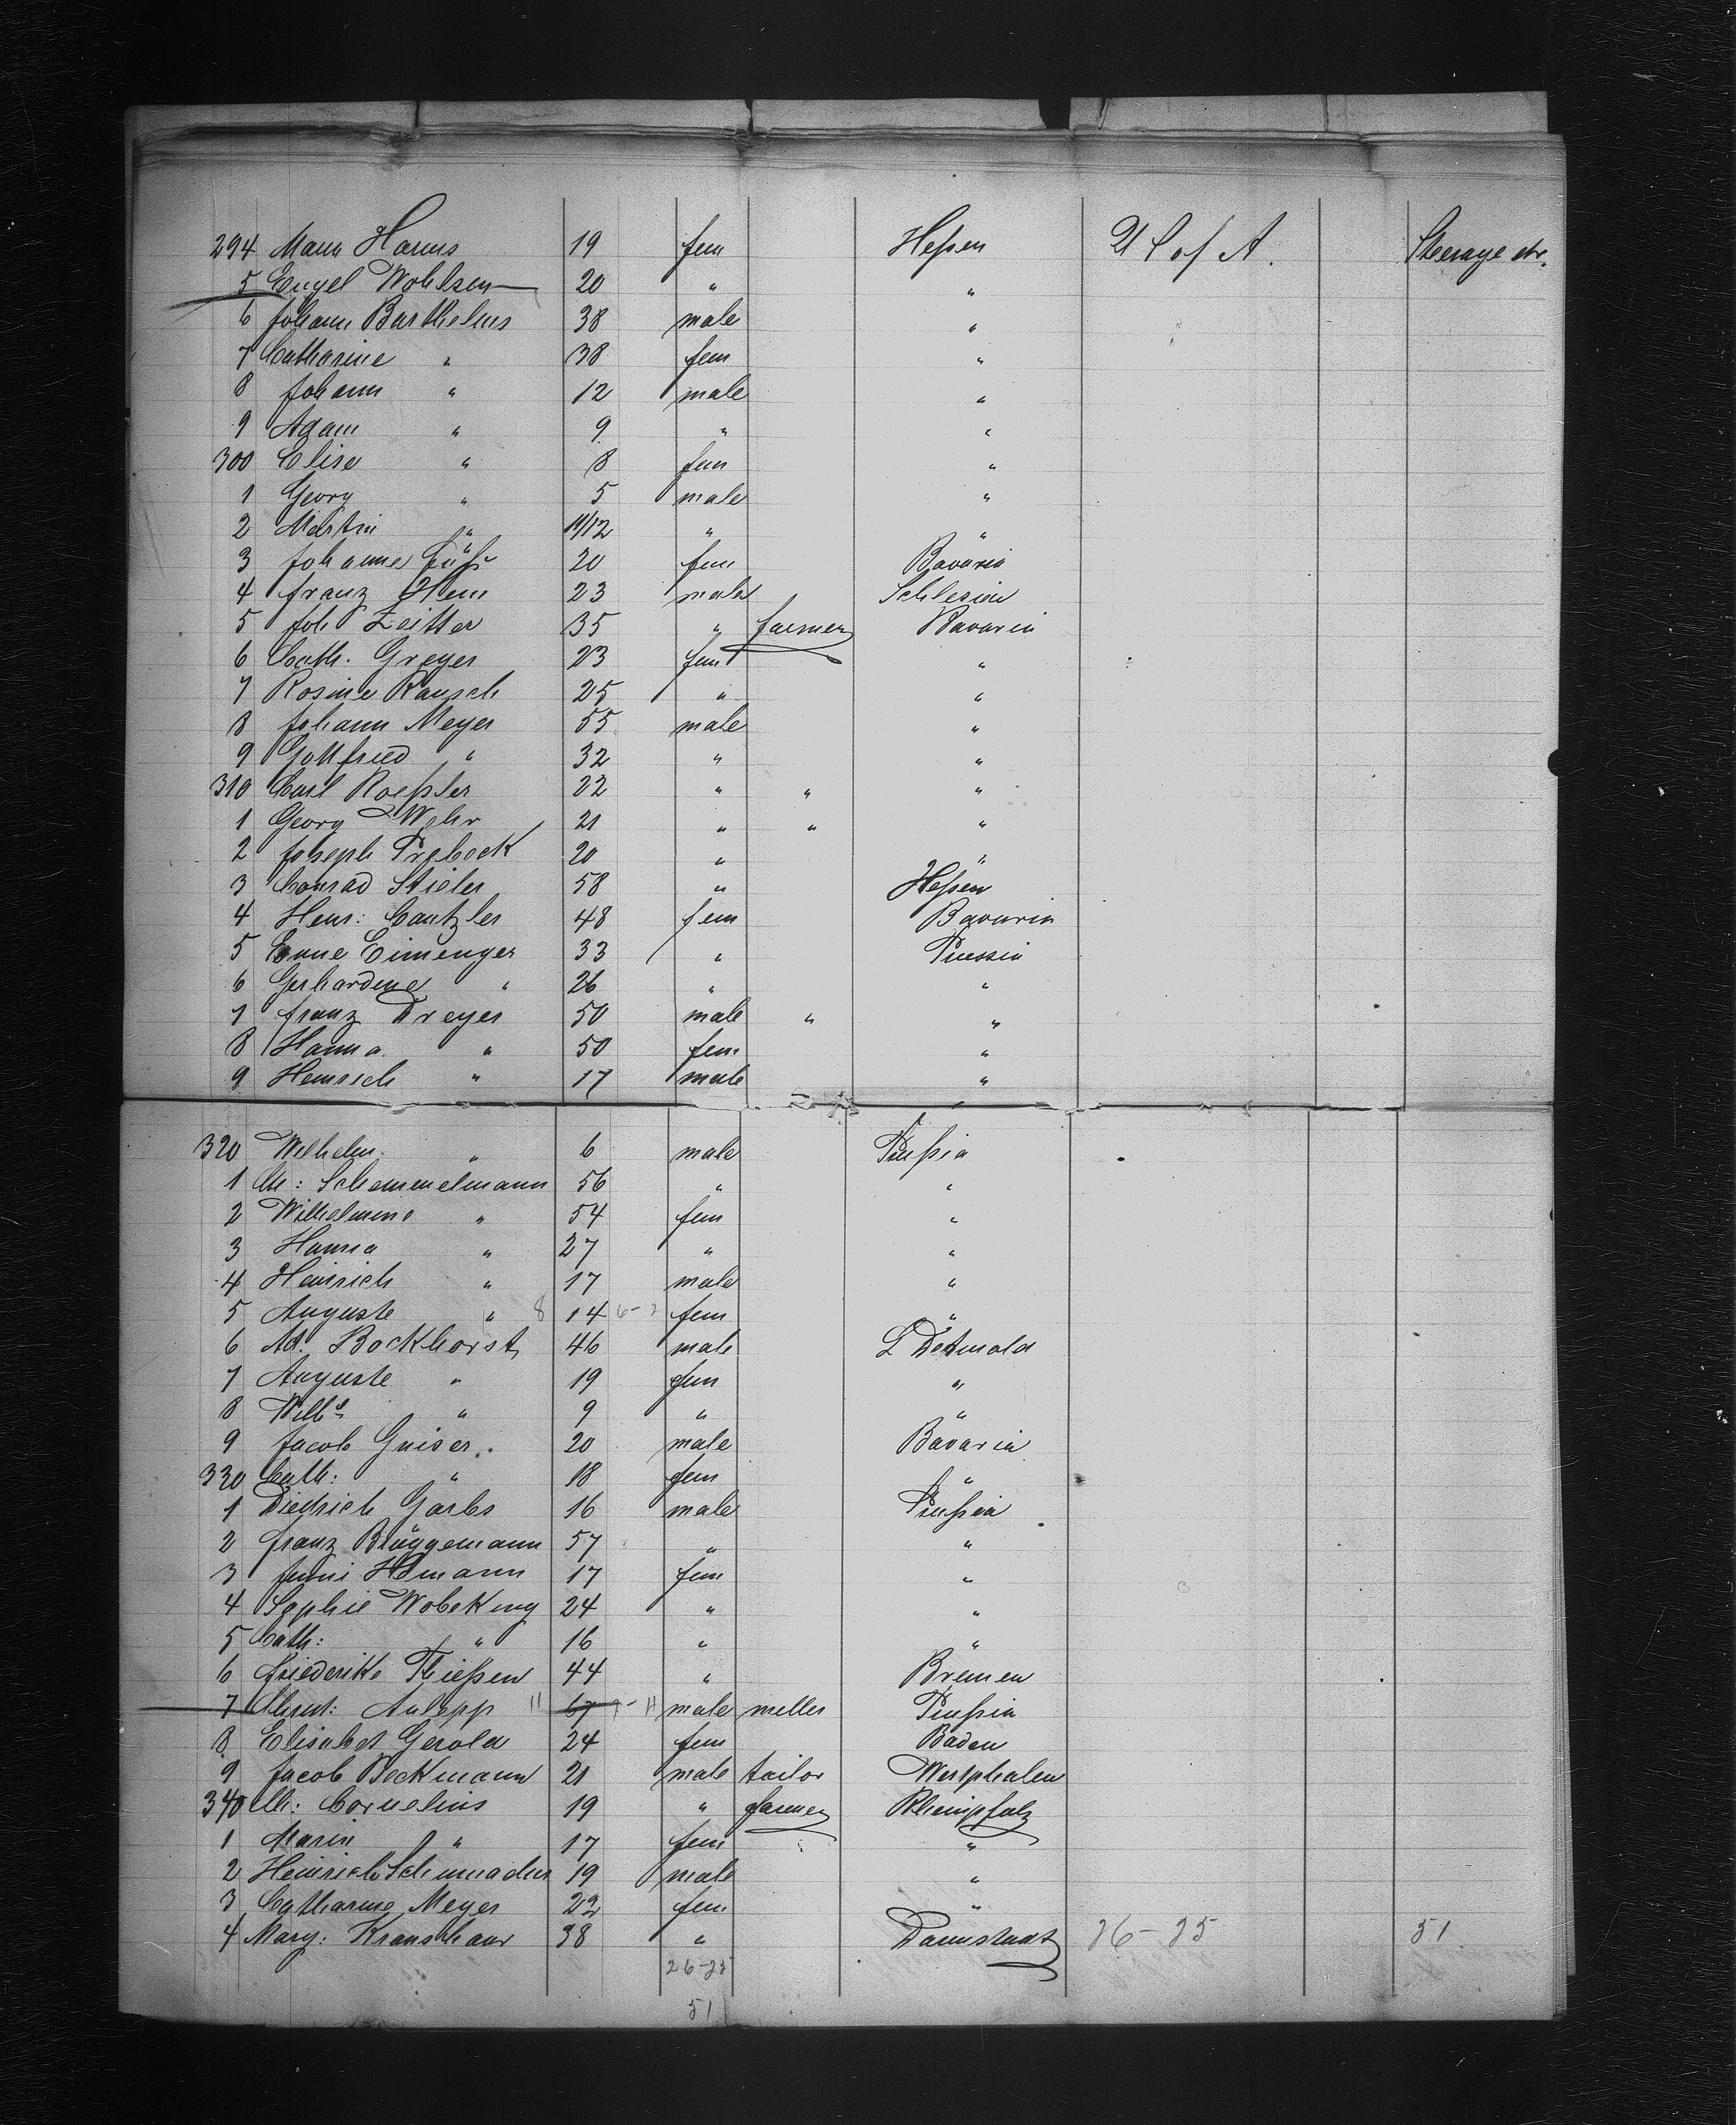 294 19 fem Heſsen U S of A. Steerage
5 Engel Wohlsen 20 " "
6 Johann Barthelms 38 male "
7 Catharine " 38 fem "
8 Johann " 12 male "
9 Adam " 9 " "
300 Elise " 8 fem "
1 Georg " 5 male "
2 Martin " 11/12 " "
3 Johanne 20 fem Bavaria
4 Franz 23 male Schlesien
5 Joh Zeitter 35 " farmer Bavaria
6 Cath. Greyer 23 fem "
7 Rosine Rausch 25 " "
8 Johann Meyer 55 male "
9 Gottfried " 32 " "
310 Carl Roeſsler 22 " " "
1 Georg Wehr 21 " " "
2 Joseph 20 " "
3 Conrad Stieler 58 " Heſsen
4 Henr: Cantzler 48 fem Bavaria
5 Eimenger 33 " Prussia
6 Gerhardine " 26 " "
7 Franz Dreyer 50 male " "
8 Hanna " 50 fem "
9 Heinrich " 17 male "
320 Wilhelm " 6 male Pruſsia
1 Schemmelmann 56 " "
2 Wilhelmine " 54 fem "
3 Hanna " 27 " "
4 Heinrich " 17 male "
5 Auguste " 8 14 fem "
6 Ad. Bockhorst 46 male L Detmold
7 Auguste " 19 fem "
8 " 9 " "
9 Jacob Geiser 20 male Bavaria
330 Cath: " 18 fem "
1 Diedrich Garbs 16 male Pruſsia
2 Franz Brüggemann 57 " "
3 17 fem "
4 Sophie Wobeking 24 " "
5 Cath: " 16 " "
6 Friederike Thieſsen 44 " Bremen
7 Aulepp 11 67 male miller Pruſsia
8 Elisabet Gerold 24 fem Baden
9 Jacob Beckmann 21 male tailor Westphalen
340 Cornelius 19 " farmer Rheinpfalz
1 Marie " 17 fem "
2 Heinrich 19 male "
3 Catharine Meyer 22 fem "
4 Marg: Kranshaar 38 " Darmstadt 26-25 51
26-25
51